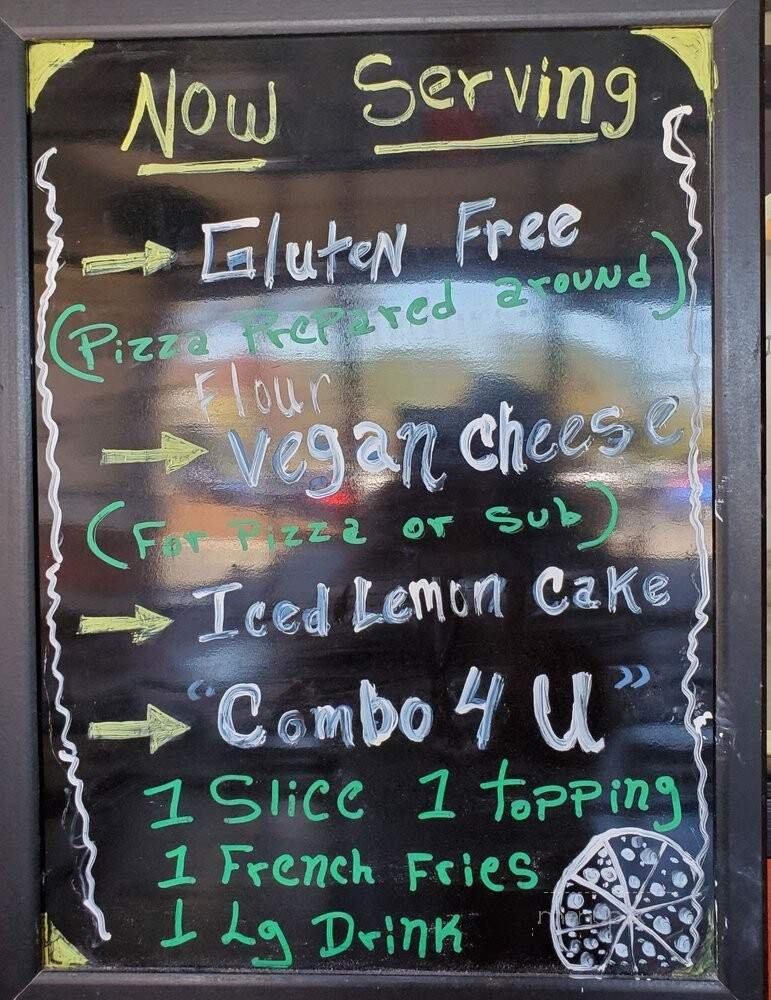 Now Serving
Gluten Free
(Pizza Prepared around)
Flour
Vegan cheese
(For Pizza or Sub)
Iced Lemon Cake
"Combo 4 U"
1 Slice 1 topping
1 French Fries
1 Lg Drink